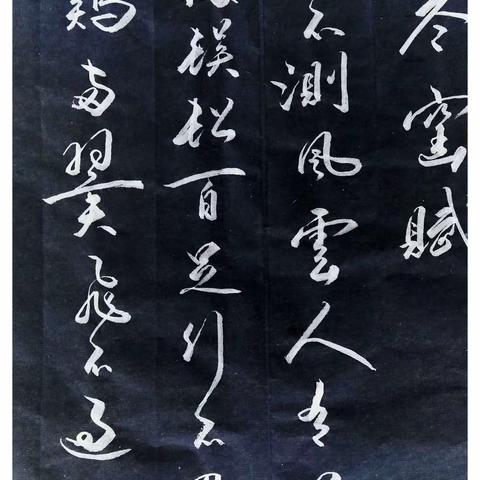 窑賦
不測風雲人有
蜈蚣百足行不
鷄两翼飛不過